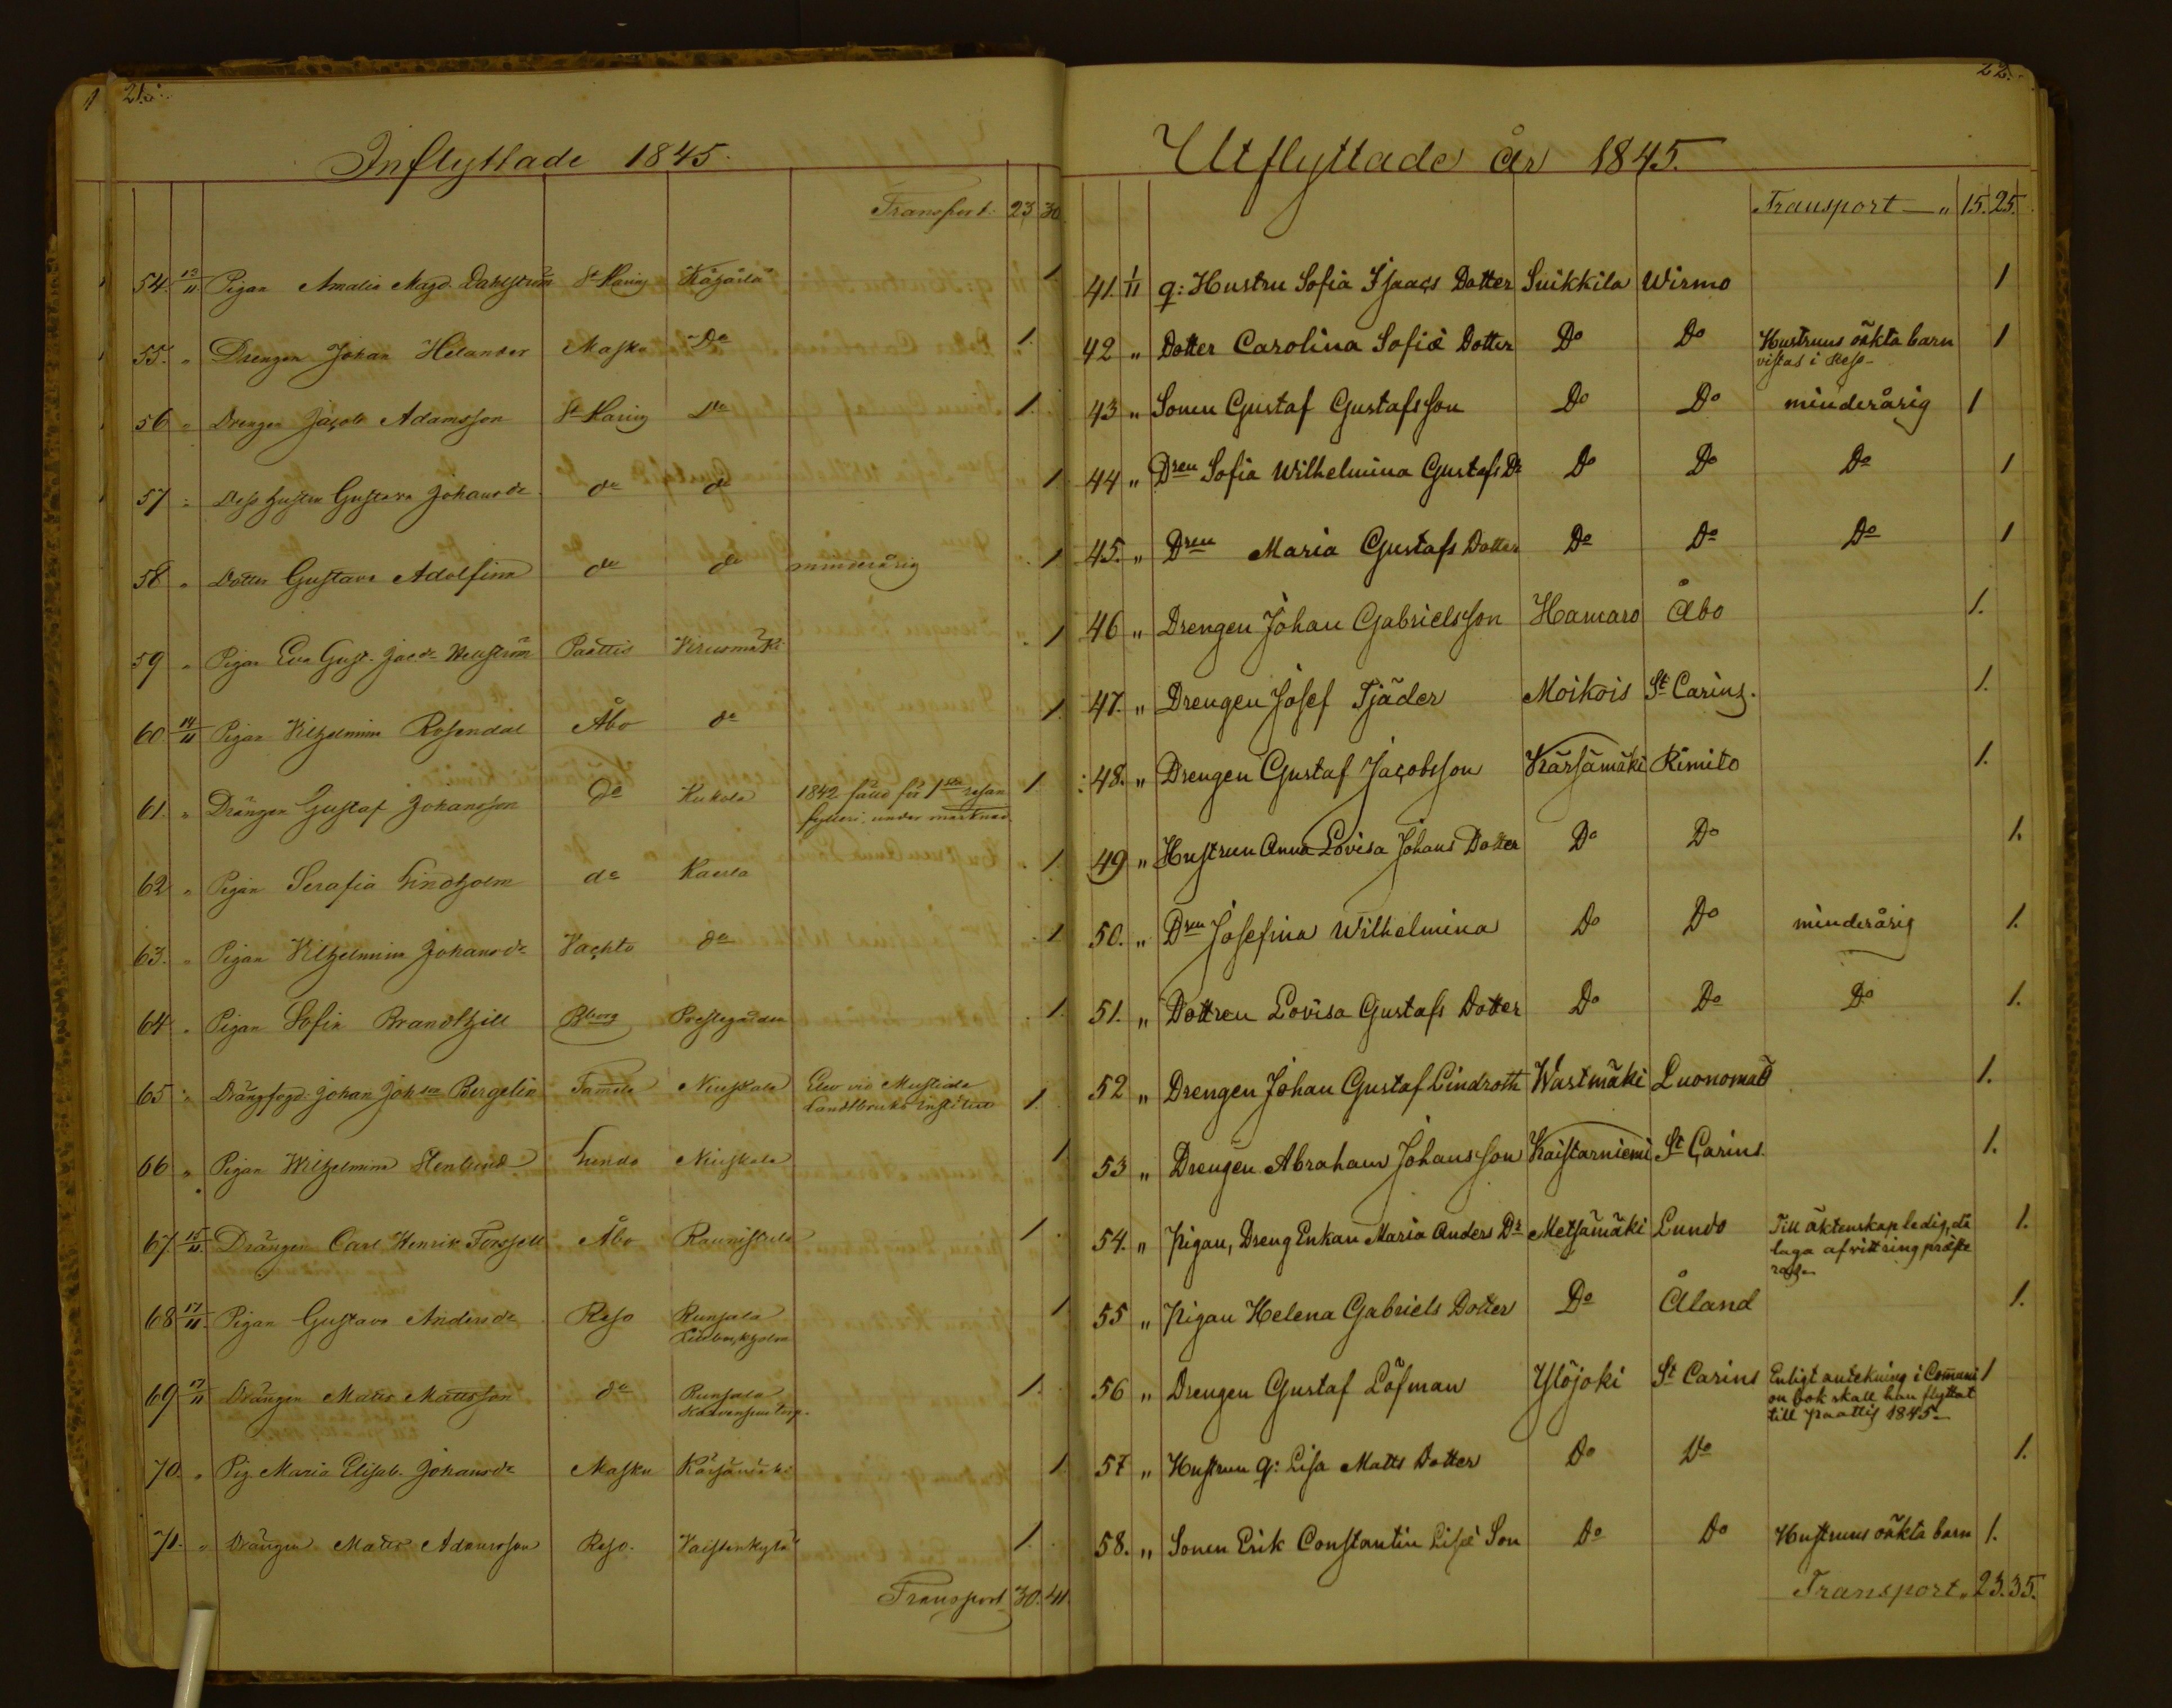 21.
Inflyttade 1845.
Transport. 23 30.
54. 13/11 Pigan Amalia Magd. Dahlström St Karins Kägärlä 1
55. " Drengen Johan Helander Masko Do 1.
56 " Drengen Jacob Adamsson St Karins Do 1.
57 " Dess hustru Gustava Johansdr do do 1
58 " Dotter Gustava Adolfina do do minderårig 1
59 " Pigan Eva Gust. Jacdr Wenström Paattis Kirusmäki 1
60 14/11 Pigan Vilhelmina Rosendal Åbo do 1.
61. " Drängen Gustaf Johansson do Kukola 1842 sakd för 1sta resan 1
fylleri under marknad
62 " Pigan Serafia Lindholm do Kaerla 1.
63. " Pigan Vilhelmina Johansdr Vachto do 1
64 " Pigan Sofia Brandthill Bborg Prestegården 1.
65 " Drängfogd. Johan Johsn Bergelin Tamela Niuskala Elev vid Mustiala 1.
Landtbruks Institut
66 " Pigan Wilhelmina Stenlund Lundo Niuskala 1
67 15/11. Drängen Carl Henrik Forssell Åbo Raunistula 1
68 17/11. Pigan Gustava Andersdr Reso Runsala 1
69 17/11 Drängen Matts Mattsson do Runsala 1.
70. " Pig Maria Elisab. Johansdr Masku Kärsämäki 1
71. " Drängen Matts Adamsson Reso. Vaistenkylä 1.
Transport 30. 41.
22.
Utflyttade år 1845.
Transport — " 15. 25.
41. 1/11 q: Hustru Sofia Isaacs Dotter Suikkila Wirmo 1
42 " Dotter Carolina Sofiæ Dotter Do Do Hustruns oäkta barn 1
vistas i Reso -
43 " Sonen Gustaf Gustafsson Do Do minderårig 1
44 " Dren Sofia Wilhelmina Gustafs Dr Do Do Do 1
45. " Dren Maria Gustafs Dotter Do Do Do 1
46 " Drengen Johan Gabrielsson Hamaro Åbo 1.
47. " Drengen Josef Tjäder Moikois St Carins. 1.
48. " Drengen Gustaf Jacobsson Kärsämäki Rimito 1.
49 " Hustrun Anna Lovisa Johans Dotter Do Do 1.
50. " Dren Josefina Wilhelmina Do Do minderårig 1.
51. " Dottren Lovisa Gustafs Dotter Do Do Do 1.
52 " Drengen Johan Gustaf Lindroth Wastmäki Luonomaa 1.
53 " Drengen Abraham Johansson Kaistarniemi St Carins. 1.
54. " Pigan, Dreng Enkan Maria Anders Dr Metsämäki Lundo Till äktenskap ledig, då 1.
laga afvittring præste
rats
55 " Pigan Helena Gabriels Dotter Do Åland 1.
56 " Drengen Gustaf Löfman Ylöjoki St Carins Enligt antekning i Comuni 1
on bok skall han flyttat
till Paattis 1845 -
57 " Hustrun q: Lisa Matts Dotter Do Do 1.
58. " Sonen Erik Constantin Lisæ Son Do Do Hustruns oäkta barn 1.
Transport " 23. 35.